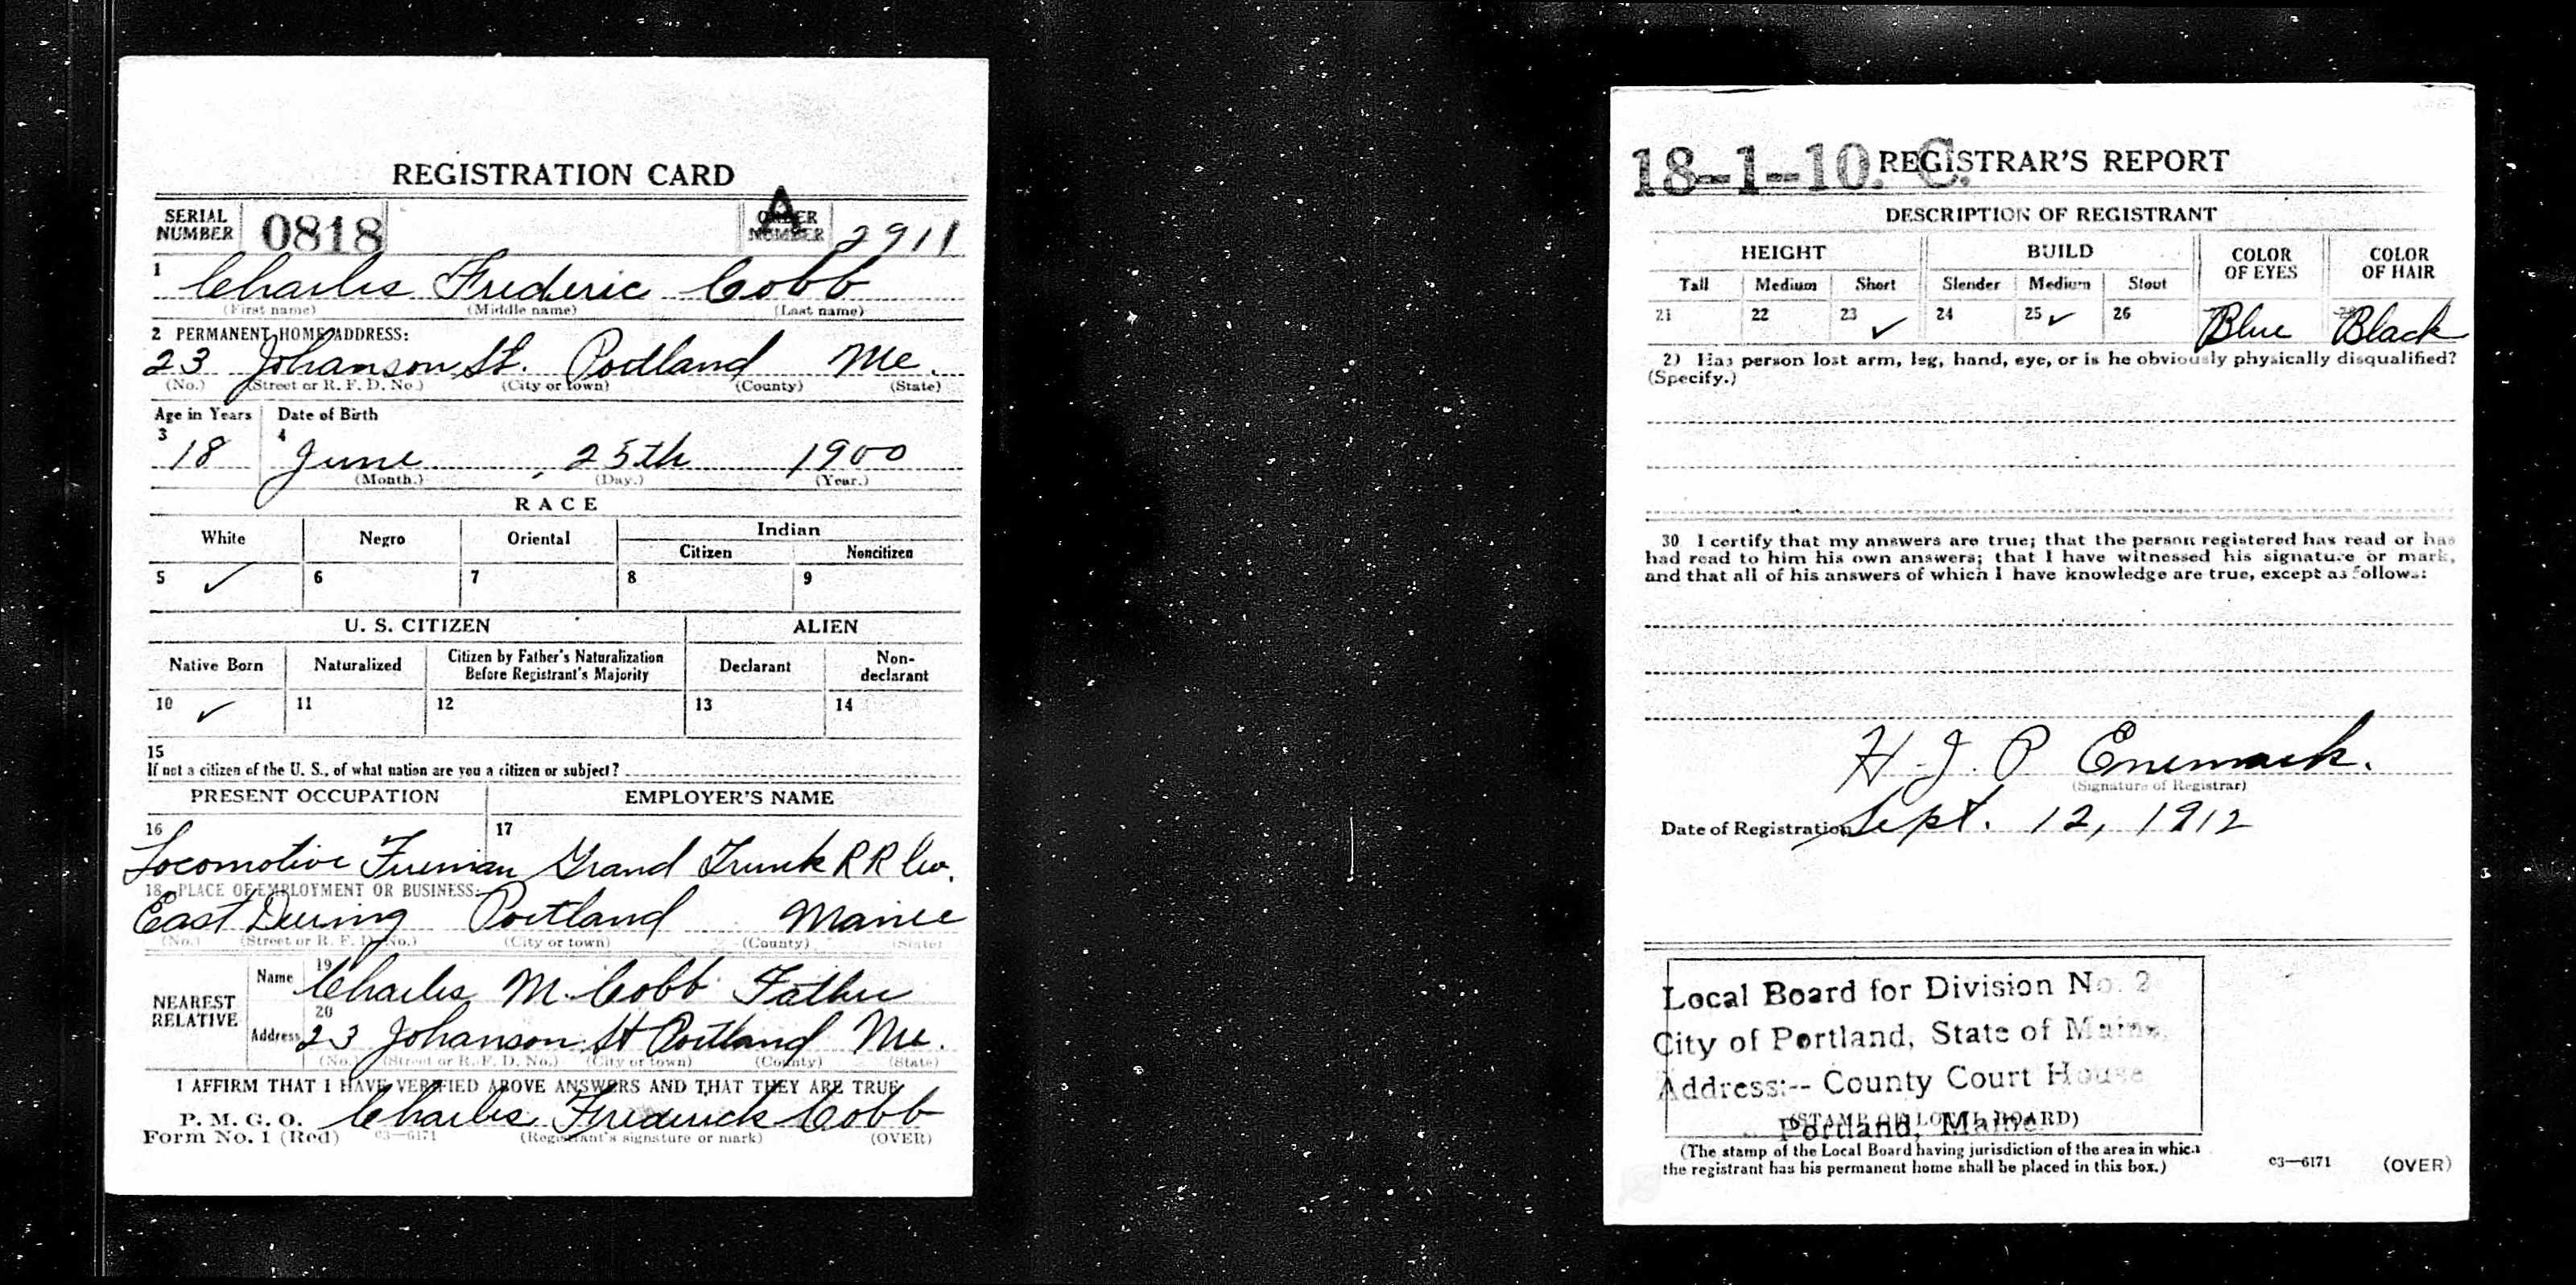 REGISTRATION CARD
SERIAL NUMBER 0818 ORDER NUMBER A 2911
1 Charles Frederic Cobb
(First name) (Middle name) (Last name)
2 PERMANENT HOME ADDRESS:
23 Johanson St. Portland Me.
(No.) (Street or R. F. D. No.) (City or town) (County) (State)
Age in Years Date of Birth
3 18 4 June 25th 1900
(Month.) (Day.) (Year.)
RACE
White Negro Oriental Indian
Citizen Noncitizen
5 ✓ 6 7 8 9
U. S. CITIZEN ALIEN
Native Born Naturalized Citizen by Father's Naturalization Before Registrant's Majority Declarant Non-declarant
10 ✓ 11 12 13 14
15
If not a citizen of the U. S., of what nation are you a citizen or subject?
PRESENT OCCUPATION EMPLOYER'S NAME
16 17
Locomotive Fireman Grand Trunk RR Co.
18 PLACE OF EMPLOYMENT OR BUSINESS:
East Deering Portland Maine
(No.) (Street or R. F. D. No.) (City or town) (County) (State)
NEAREST RELATIVE
Name 19 Charles M. Cobb Father
20
Address 23 Johanson St Portland Me.
(No.) (Street or R. F. D. No.) (City or town) (County) (State)
I AFFIRM THAT I HAVE VERIFIED ABOVE ANSWERS AND THAT THEY ARE TRUE
P. M. G. O. Charles Frederick Cobb
Form No. 1 (Red) c3—6171 (Registrant's signature or mark) (OVER)
18-1-10. C. REGISTRAR'S REPORT
DESCRIPTION OF REGISTRANT
HEIGHT BUILD COLOR OF EYES COLOR OF HAIR
Tall Medium Short Slender Medium Stout
21 22 23 ✓ 24 25 ✓ 26 Blue Black
29 Has person lost arm, leg, hand, eye, or is he obviously physically disqualified?
(Specify.)
30 I certify that my answers are true; that the person registered has read or has
had read to him his own answers; that I have witnessed his signature or mark,
and that all of his answers of which I have knowledge are true, except as follows:
H. J. P Enemark.
(Signature of Registrar)
Date of Registration Sept. 12, 1912
Local Board for Division No. 2
City of Portland, State of Maine,
Address:-- County Court House
(STAMP OF LOCAL BOARD)
Portland, Maine
(The stamp of the Local Board having jurisdiction of the area in which
the registrant has his permanent home shall be placed in this box.)
c3—6171 (OVER)